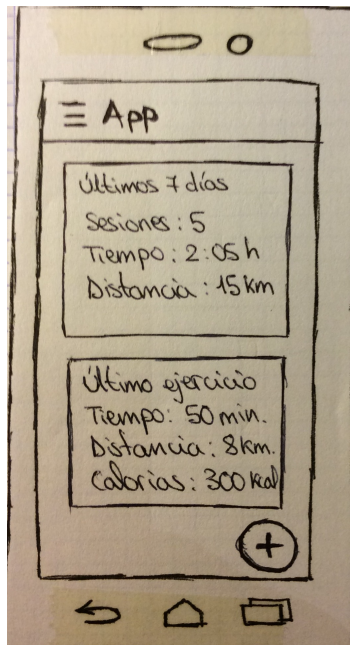 App
Últimos 7 días
Sesiones: 5
Tiempo: 2:05 h
Distancia: 15 km
Último ejercicio
Tiempo: 50 min.
Distancia: 8 km.
Calorías: 300 kcal